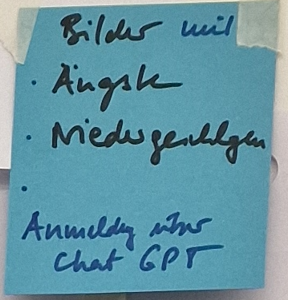 Bilder mit
· Ängste
· Niedergeschlagen
·
Anmeldg über
Chat GPT